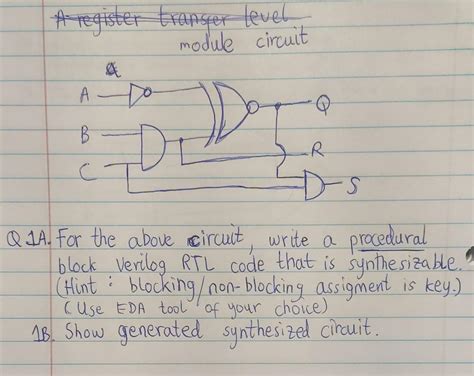 A register transfer level
module circuit
A
Q
B
R
C
S
Q 1A. For the above circuit, write a procedural
block Verilog RTL code that is synthesizable.
(Hint : blocking/non-blocking assigment is key.)
(Use EDA tool of your choice)
1B. Show generated synthesized circuit.